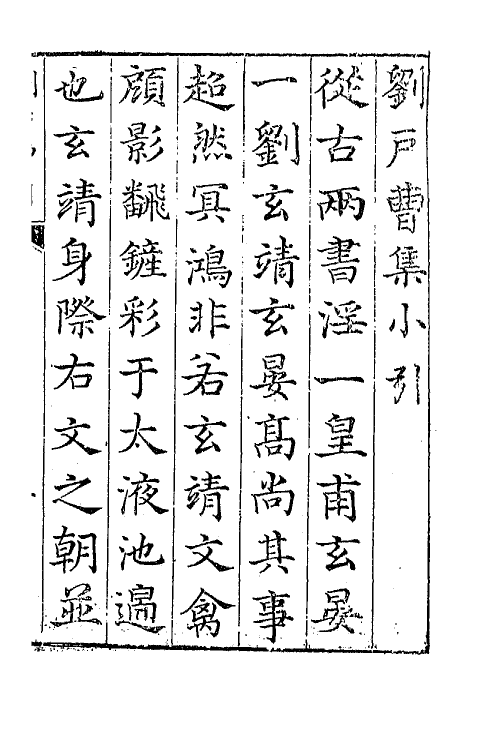 劉戶曹集小引
從古兩書淫一皇甫玄晏
一劉玄靖玄晏高尚其事
超然冥鴻非若玄靖文禽
顧影翻鏟彩于太液池邊
也玄靖身際右文之朝並